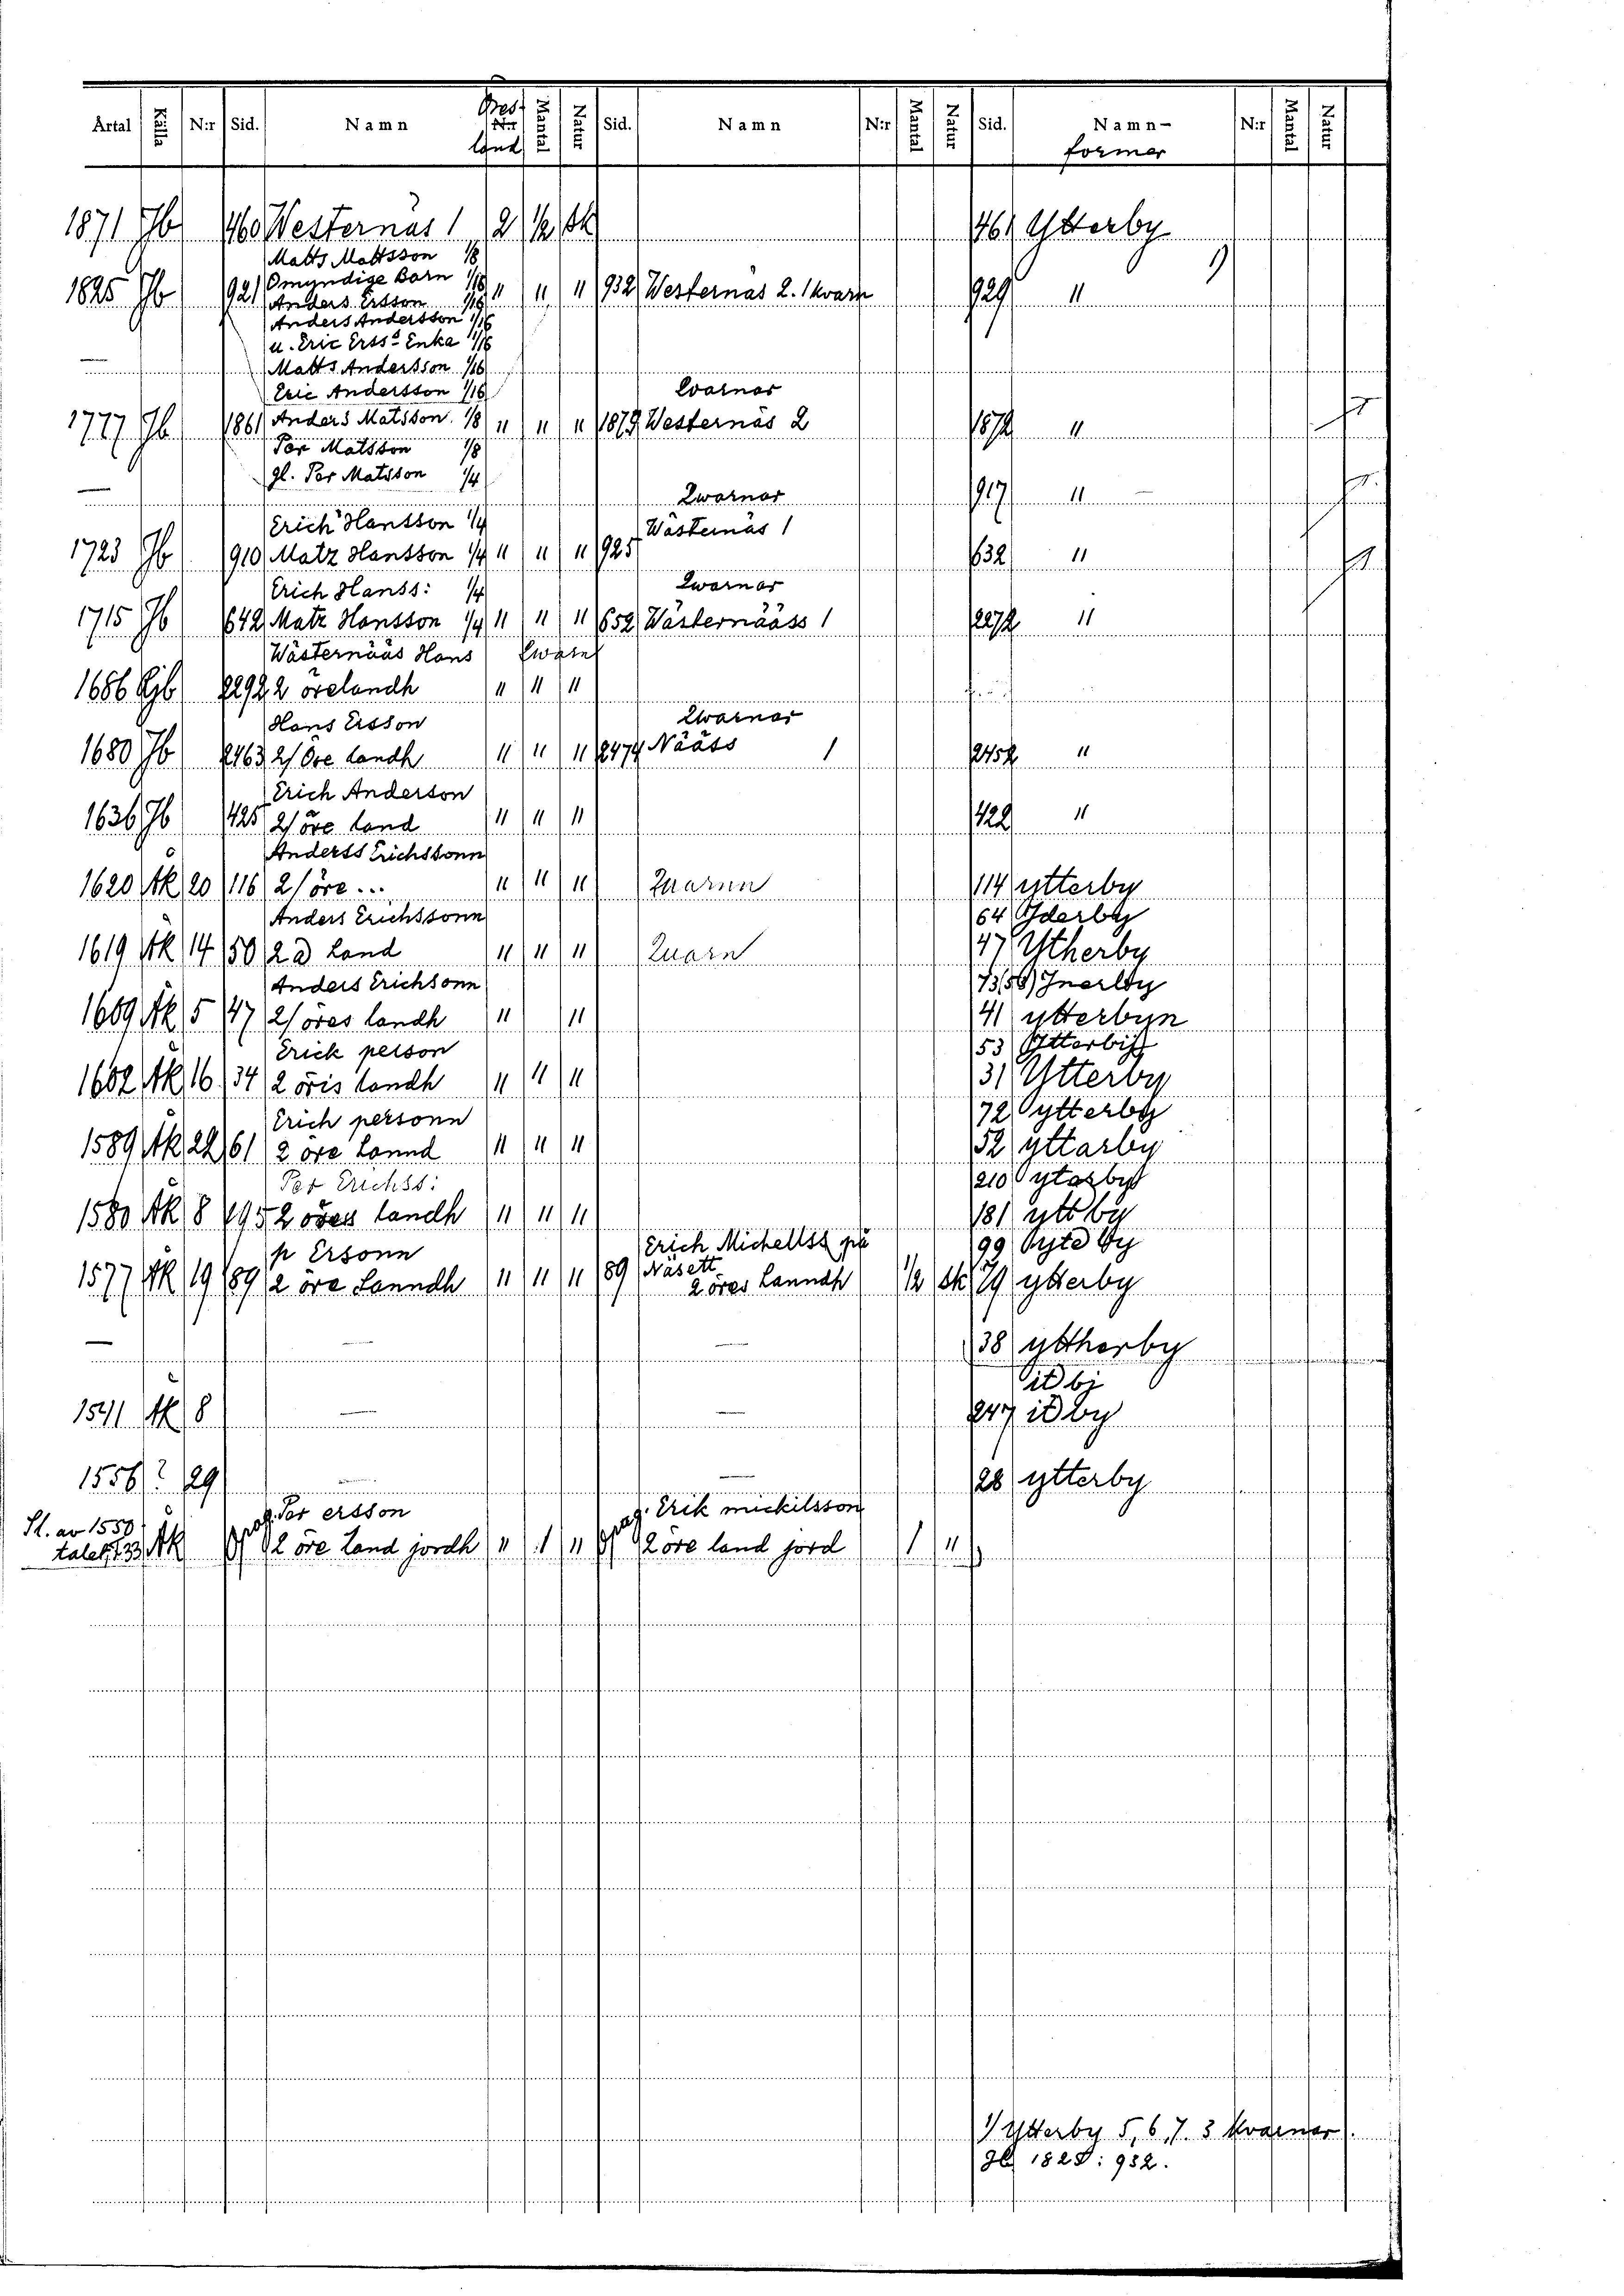 Årtal Källa N:r Sid. Namn Öres- N:r land Mantal Natur Sid. Namn N:r Mantal Natur Sid. Namn- former N:r Mantal Natur
1871 Jb 460 Westernäs 1 2 1/2 Sk 461 Ytterby
Matts Mattsson 1/8
Omyndige Barn 1/16
1825 Jb 921 Anders Ersson 1/16 " " " 932 Westernäs 2. 1 kvarn 929 " 1)
Anders Andersson 1/16
u. Eric Erss:s Enka 1/16
— Matts Andersson 1/16
Eric Andersson 1/16 Qvarnar
1777 Jb 1861 Anders Matsson 1/8 " " " 1879 Westernäs 2 1872 "
Per Matsson 1/8
gl. Per Matsson 1/4
— Qwarnar 917 "
Erich Hansson 1/4 Wästernäs 1
1723 Jb 910 Matz Hansson 1/4 " " " 925 632 "
Erich Hanss: 1/4 Qwarnar
1715 Jb 642 Matz Hansson 1/4 " " " 652 Wästernääss 1 2272 "
Wästernääs Hans Qwarn
1686 Rjb 2292 2 örelandh " " "
Hans Ersson Qwarnar
1680 Jb 2463 2/Öre landh " " " 2474 Nääss 1 2452 "
Erich Anderson
1636 Jb 425 2/öre land " " " 422 "
Anderss Erichssonn
1620 Åk 20 116 2/öre ... " " " Quarnn 114 ytterby
Anders Erichssonn 64 Yderby
1619 Åk 14 50 2 ø Land " " " Quarn 47 Ytherby
Anders Erichsonn 73(58)
1609 Åk 5 47 2/öres landh " " 41 ytterbyn
Erick person 53
1602 Åk 16 34 2 öris landh " " " 31 Ytterby
Erich personn 72 ytterby
1589 Åk 22 61 2 öre Lannd " " " 52 yttarby
Per Erichss: 210 ytarby
1580 Åk 8 195 2 öres landh " " " 181 ytt by
p Ersonn Erich Michellss på 99 yte by
1577 Åk 19 89 2 öre Lanndh " " " 89 Näsett 2 öres Lanndh 1/2 Sk 79 ytterby
— — — 38 yttherby
1541 Åk 8 — — 247 it by
1556 ? 29 — — 28 ytterby
Sl. av 1550 opag. Per ersson opag. Erik mickilsson
talet, 1:33 Åk 2 öre Land jordh " 1 " 2 öre land jord 1 "
1/ Ytterby 5, 6, 7. 3 kvarnar.
Jb 1825: 932.